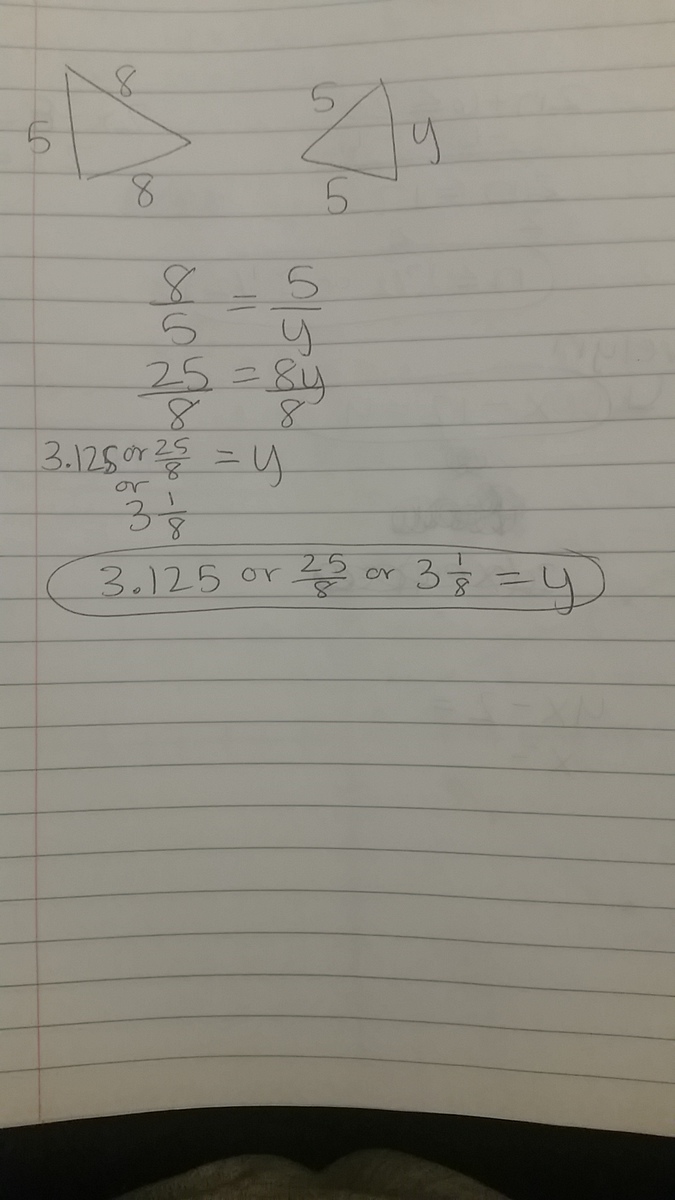 8 5
5 y
8 5
8/5 = 5/y
25/8 = 8y/8
3.125 or 25/8 = y
or
3 1/8
3.125 or 25/8 or 3 1/8 = y